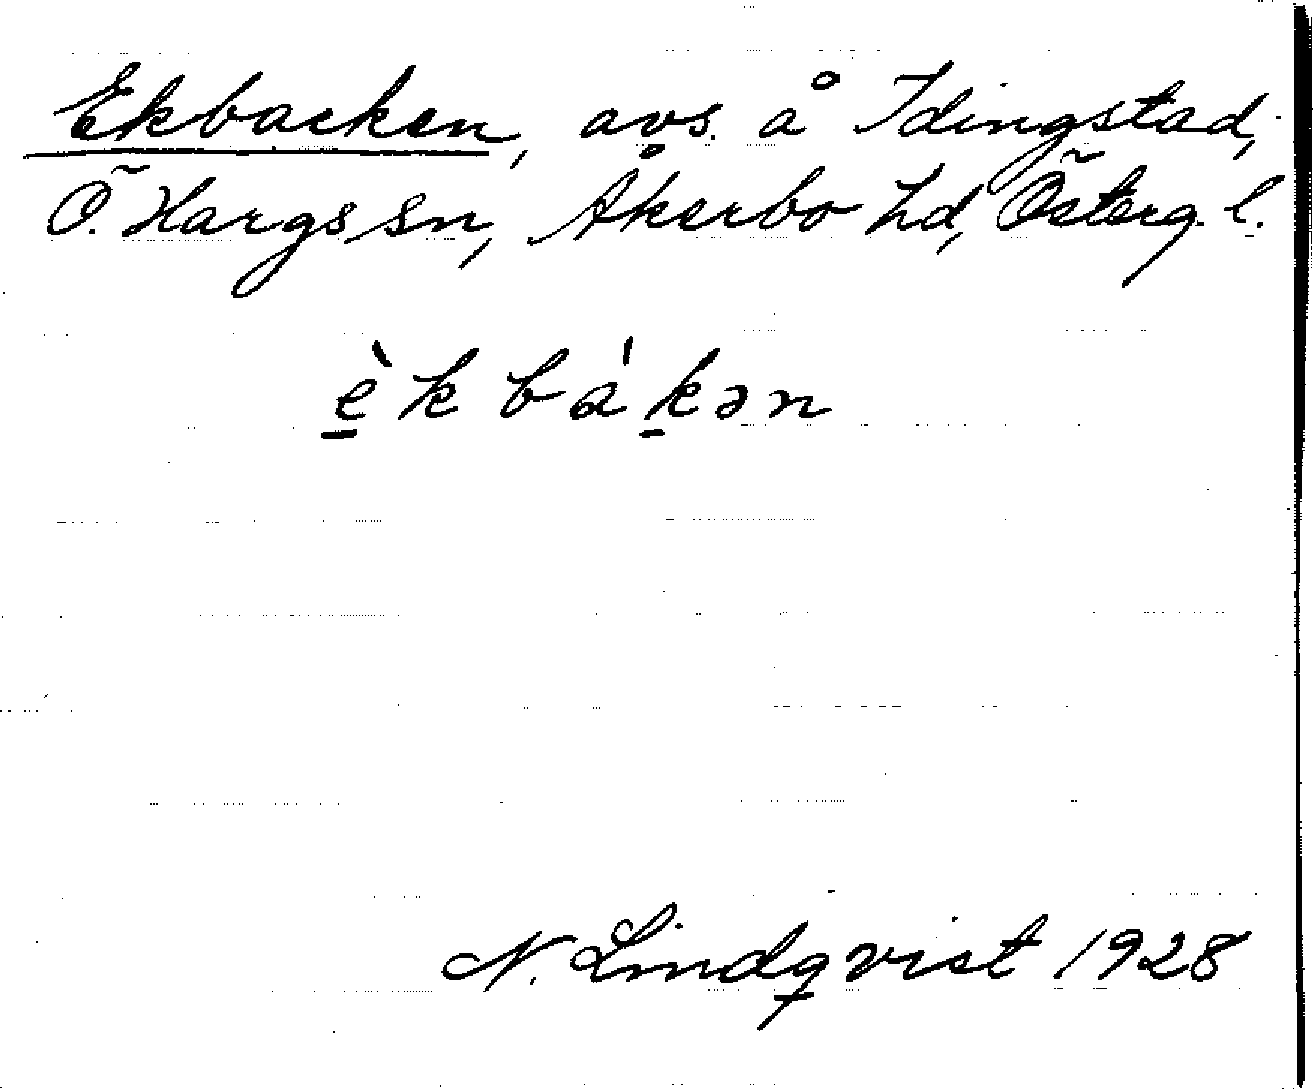 Ekbacken, avs. å Idingstad,
Ö. Hargs sn, Åkerbo hd, Österg. l.
è̱kbákən
N. Lindqvist 1928